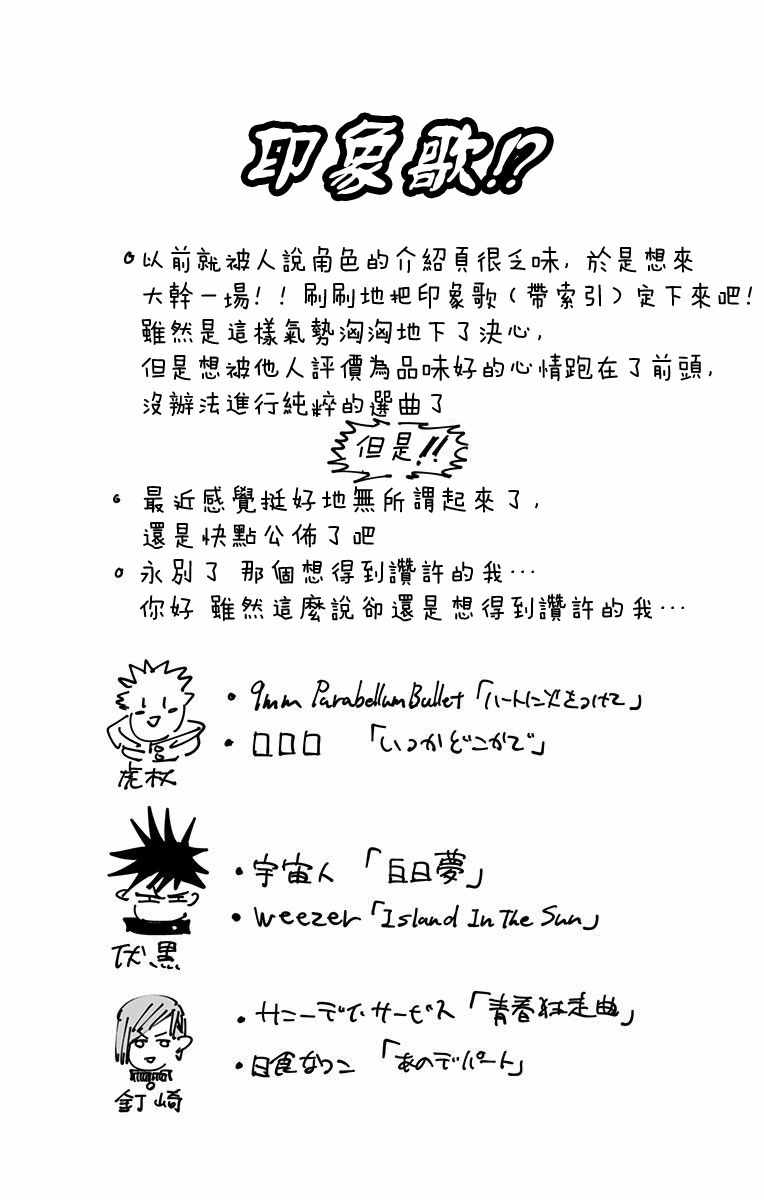 印象歌!?
以前就被人說角色的介紹頁很乏味,於是想來
大幹一場!!刷刷地把印象歌(帶索引)定下來吧!
雖然是這樣氣勢洶洶地下了決心,
但是想被他人評價為品味好的心情跑在了前頭,
沒辦法進行純粹的選曲了
但是!!
最近感覺挺好地無所謂起來了,
還是快點公佈了吧
永別了 那個想得到讚許的我…
你好 雖然這麼說卻還是想得到讚許的我…
・9mm Parabellum Bullet「ハートに火をつけて」
・口口口 「いつかどこかで」
虎杖
・宇宙人 「白日夢」
・weezer「Island In The Sun」
伏黒
・サニーデイ・サービス「青春狂走曲」
・日食なつこ 「あのデパート」
釘崎